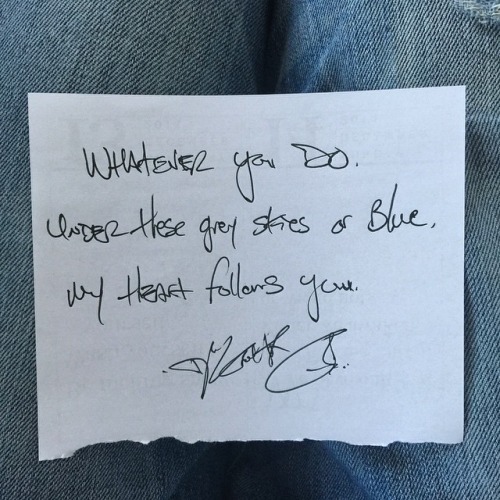 WHATEVER you DO.
UNDER these grey skies or Blue,
my HEART follows you.